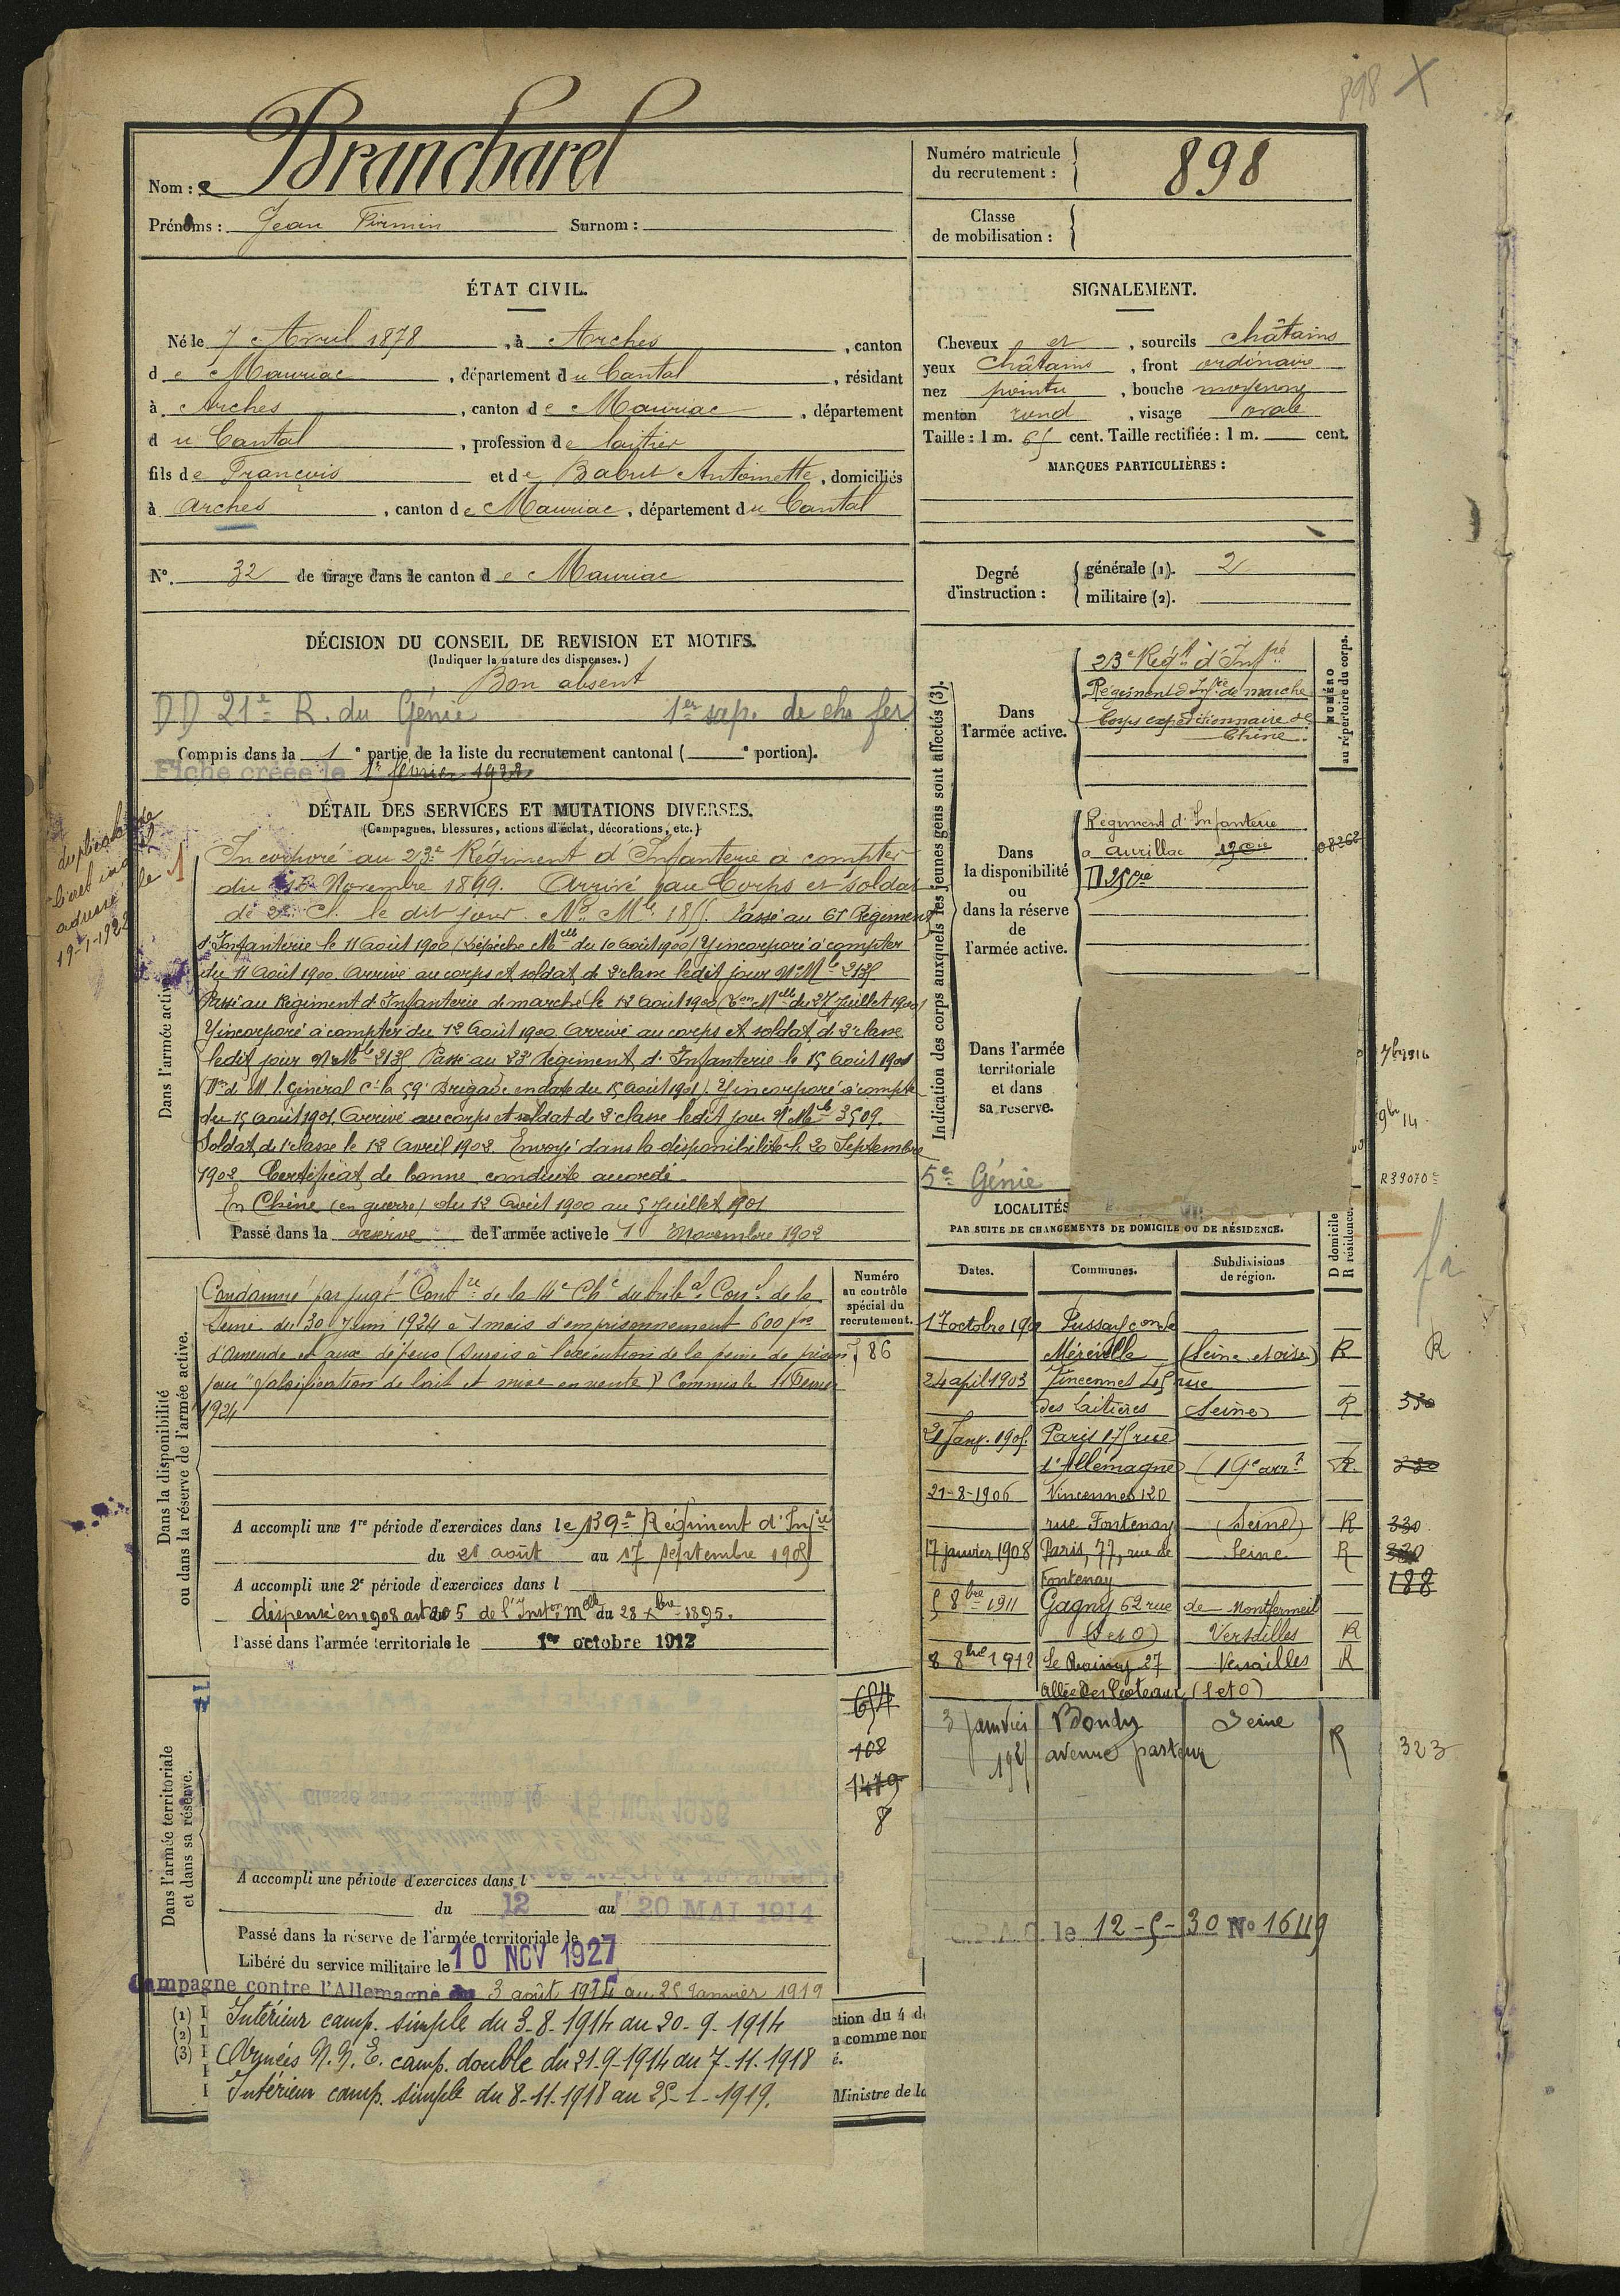 898 X
Nom : Brancharel
Prénoms : Jean Firmin Surnom :
Numéro matricule du recrutement : 898
Classe de mobilisation :
ÉTAT CIVIL.
Né le 7 Avril 1878, à Arches, canton
de Mauriac, département du Cantal, résidant
à Arches, canton de Mauriac, département
du Cantal, profession de laitier
fils de François et de Babut Antoinette, domiciliés
à Arches, canton de Mauriac, département du Cantal
N°. 32 de tirage dans le canton de Mauriac
SIGNALEMENT.
Cheveux et, sourcils châtains
yeux châtains, front ordinaire
nez pointu, bouche moyenne
menton rond, visage ovale
Taille : 1 m. 65 cent. Taille rectifiée : 1 m. cent.
MARQUES PARTICULIÈRES :
Degré d'instruction :
générale (1). 2
militaire (2).
DÉCISION DU CONSEIL DE REVISION ET MOTIFS.
(Indiquer la nature des dispenses.)
Bon absent
21e R. du Génie 1er sap. de ch. fer
Compris dans la 1e partie de la liste du recrutement cantonal ( e portion).
Fiche créée le 1er février 1922
DÉTAIL DES SERVICES ET MUTATIONS DIVERSES.
(Campagnes, blessures, actions d'éclat, décorations, etc.)
duplicata de
livret
adressé le
19-1-1922
Dans l'armée active.
Incorporé au 23e Régiment d'Infanterie à compter
du Novembre 1899. Arrivé au Corps et soldat
de 2e Cl. le dit jour. No Mle 1855. Passé au 61 Régiment
d'Infanterie le 11 Août 1900 (Dépêche Mlle du 10 août 1900) Y incorporé à compter
du 11 Août 1900. Arrivé au corps et soldat de 2e classe ledit jour No Mle 2135
Passé au Régiment d'Infanterie de marche le 12 Août 1900 (Don Mlle du 27 Juillet 1900)
Y incorporé à compter du 12 Août 1900. Arrivé au corps et soldat de 2e classe
ledit jour No Mle 2135. Passé au 23e Régiment d'Infanterie le 15 Août 1901
de M. le Général Ct la 59e Brigade en date du 15 août 1901). Y incorporé à compter
du 15 Août 1901. Arrivé au corps et soldat de 2e classe ledit jour No Mle 3509.
Soldat de 1e classe le 12 Avril 1902. Envoyé dans la disponibilité le 20 Septembre
1902. Certificat de bonne conduite accordé.
En Chine (en guerre) du 12 Août 1900 au 5 Juillet 1901
Passé dans la réserve de l'armée active le 1 Novembre 1902
Indication des corps auxquels les jeunes gens sont affectés (3).
NUMÉRO au répertoire du corps.
Dans l'armée active.
23e Régt d'Infrie
Régiment d'Infie de marche
Corps expéditionnaire de
Chine.
Dans la disponibilité ou dans la réserve de l'armée active.
Régiment d'Infanterie
à Aurillac
08268
Dans l'armée territoriale et dans sa réserve.
7bre 1914
9bre 14
R39070
5e Génie
LOCALITÉS
PAR SUITE DE CHANGEMENTS DE DOMICILE OU DE RÉSIDENCE.
Dates. Communes. Subdivisions de région. D domicile R résidence.
Méréville (Seine et oise) R R
24 avril 1903 Vincennes 45 rue
des Laitières Seine R 330
21 Janv. 1905. Paris 175 rue
d'Allemagne (19e arrt) R 330
21-8-1906 Vincennes 120
rue Fontenay (Seine) R 330
17 janvier 1908 Paris, 77, rue de Seine R 330
Fontenay 188
5 8bre 1911 Gagny 62 rue de Montfermeil
(S et O) Versailles R
8 8bre 1912 Le Raincy 27 Versailles R
allée des Coteaux (S et O)
3 janvier Bondy Seine
avenue pasteur R 323
le 12-5-30 No 16119
Dans la disponibilité ou dans la réserve de l'armée active.
Numéro au contrôle spécial du recrutement.
Condamné par jugt Contre de la 11e Chre du tribal Corl de la
Seine du 30 Juin 1924 à 1 mois d'emprisonnement 600 frs
d'amende et aux dépens (sursis à l'exécution de la peine de prison
pour "falsification de lait et mise en vente" Commis le 11 février
1924
86
A accompli une 1re période d'exercices dans le 139e Régiment d'Infie
du 21 août au 17 septembre 1905
A accompli une 2e période d'exercices dans l
dispensé en 1908 art 205 de l'Inston Mlle du 28 Xbre 1895.
Passé dans l'armée territoriale le 1er octobre 1912
Dans l'armée territoriale et dans sa réserve.
654
108
1479
8
A accompli une période d'exercices dans l
du 12 au 20 MAI 1914
Passé dans la réserve de l'armée territoriale le
Libéré du service militaire le 10 NOV 1927
Campagne contre l'Allemagne du 3 août 1914 au 25 Janvier 1919
Intérieur camp. simple du 3-8-1914 au 20-9-1914
Armées N.N.E. camp. double du 21-9-1914 au 7-11-1918
Intérieur camp. simple du 8-11-1918 au 25-1-1919.
(1)
(2)
(3)
ction du 4 d
a comme non
é.
Ministre de la